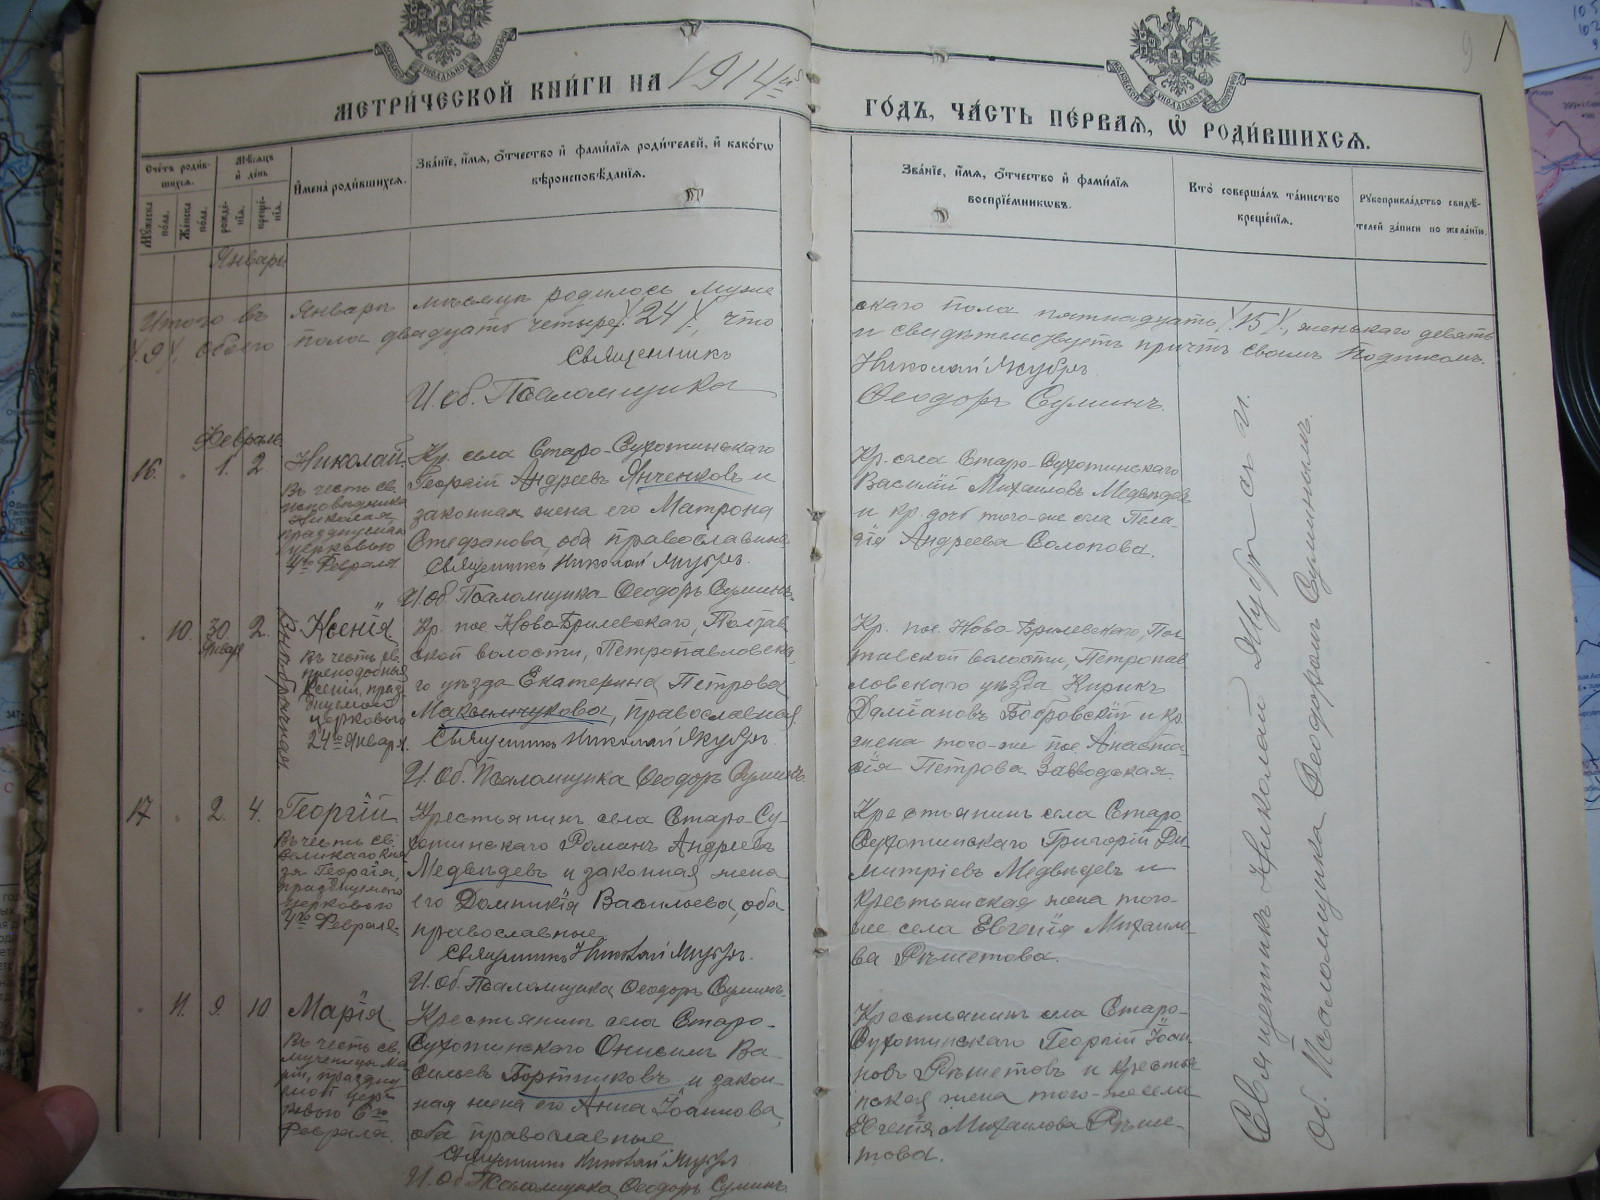 МЕТРИ́ЧЕСКОЙ КНИ́ГИ НА 1914й
ГО́ДЪ, ЧА́СТЬ ПЕ́РВАЯ, Ѡ РОДИ́ВШИХСЯ.
9
Сче́тъ роди́в-
шихся.
Мѣ́сяцъ
и де́нь
Мꙋ́жеска
по́ла.
Же́нска
по́ла.
рожде́-
нїѧ.
креще́-
нїѧ.
Имена̀ роди́вшихся.
Зва́нїе, и́мѧ, ѻ́тчество и҆ фами́лїѧ роди́телей, и҆ како́гѡ
вѣроисповѣ́данїѧ.
Зва́нїе, и́мѧ, ѻ́тчество и҆ фами́лїѧ
воспрїе́мникѡвъ.
Кто̀ соверша́лъ та́инство
креще́нїѧ.
Рꙋкоприкла́дство свидѣ́-
телей за́писи по жела́нїю.
Январь.
Итого въ Январѣ мѣсяцѣ родилось муже
скаго пола пятнадцать /15/, женскаго девять
/9/, обоего пола двадцать четыре /24/, что
и свидѣтельствуетъ причтъ своимъ подписомъ.
Священникъ
Николай Якубъ
И. об. Псаломщика
Ѳеодоръ Суминъ.
Февраль
16. 1. 2. Николай.
Въ честь св.
исповѣдника
Николая
празднуемаго
церковью
4го Февраля
Кр. села Старо-Сухотинскаго
Георгій Андреевъ Янченковъ и
законная жена его Матрона
Стефанова, оба православные
Священникъ Николай Якубъ.
И. об. Псаломщика Ѳеодоръ Суминъ.
Кр. села Старо-Сухотинскаго
Василій Михаиловъ Медвѣдевъ
и кр. дочь того-же села Пела-
гія Андреева Солопова.
10. 30. Января 2. Ксенія
Внѣбрачная
Въ честь св.
преподобной
Ксеніи, праз-
днуемой
церковью
24го Января.
Кр. пос. Ново-Брилевскаго, Полтав
ской волости, Петропавловска
го уѣзда Екатерина Петрова
Максимчукова, православная
Священникъ Николай Якубъ.
И. Об. Псаломщика Ѳеодоръ Суминъ.
Кр. пос. Ново-Брилевскаго, Пол
тавской волости, Петропав
ловскаго уѣзда Кирикъ
Даміановъ Бобровскій и кр.
жена того-же пос. Анаста
сія Петрова Завводская.
17 2. 4. Георгій
Въ честь св.
великаго кня
зя Георгія,
празднуемаго
церковью
4го Февраля.
Крестьянинъ села Старо-Су-
хотинскаго Романъ Андреевъ
Медвѣдевъ и законная жена
его Домникія Васильева, оба
православные
Священникъ Николай Якубъ.
И. Об. Псаломщика Ѳеодоръ Суминъ.
Крестьянинъ села Старо
Сухотинскаго Григорій Ди-
митріевъ Медвѣдевъ и
крестьянская жена того-
же села Евгенія Михаило
ва Рѣшетова.
11. 9. 10. Марія.
Въ честь св.
мученицы Ма
ріи, праздну
емой цер-
ковью 6го
Февраля.
Крестьянинъ села Старо-
Сухотинскаго Онисимъ Ва-
сильевъ Бортниковъ и закон-
ная жена его Анна Іоаннова,
оба православные
Священникъ Николай Якубъ
И. Об. Псаломщика Ѳеодоръ Суминъ.
Крестьянинъ села Старо-
Сухотинскаго Георгій Іоан-
новъ Рѣшетовъ и крестья
нская жена того-же села
Евгенія Михаилова Рѣше-
това.
Священникъ Николай Якубъ съ и.
Об. Псаломщика Ѳеодоромъ Суминымъ.